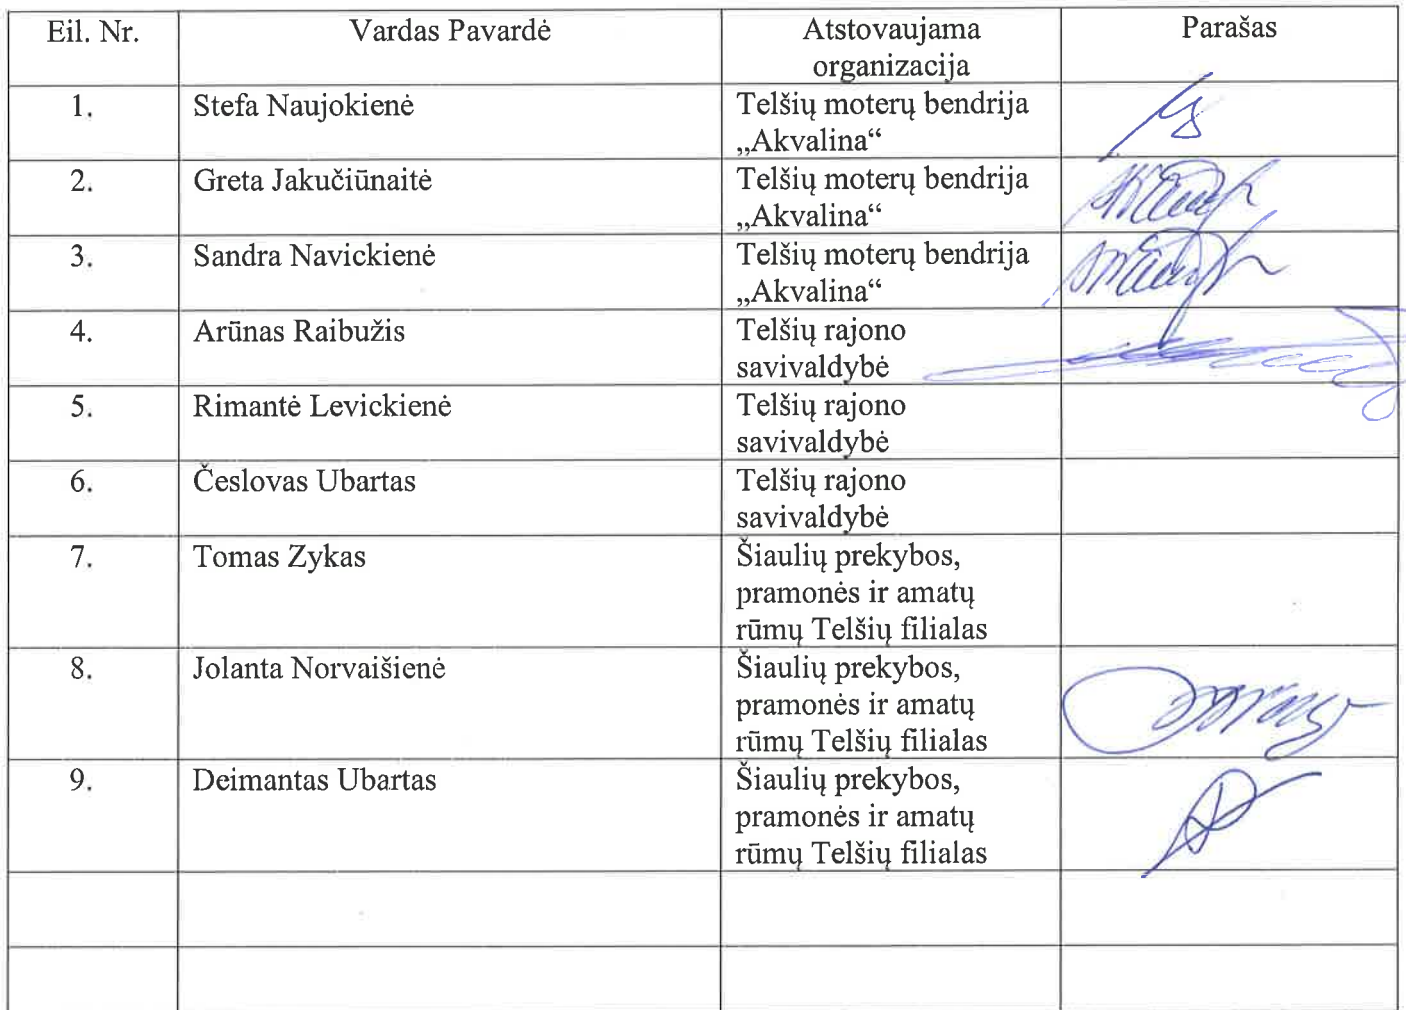 Eil. Nr. Vardas Pavardė Atstovaujama Parašas
organizacija
1. Stefa Naujokienė Telšių moterų bendrija
„Akvalina“
2. Greta Jakučiūnaitė Telšių moterų bendrija
„Akvalina“
3. Sandra Navickienė Telšių moterų bendrija
„Akvalina“
4. Arūnas Raibužis Telšių rajono
savivaldybė
5. Rimantė Levickienė Telšių rajono
savivaldybė
6. Česlovas Ubartas Telšių rajono
savivaldybė
7. Tomas Zykas Šiaulių prekybos,
pramonės ir amatų
rūmų Telšių filialas
8. Jolanta Norvaišienė Šiaulių prekybos,
pramonės ir amatų
rūmų Telšių filialas
9. Deimantas Ubartas Šiaulių prekybos,
pramonės ir amatų
rūmų Telšių filialas